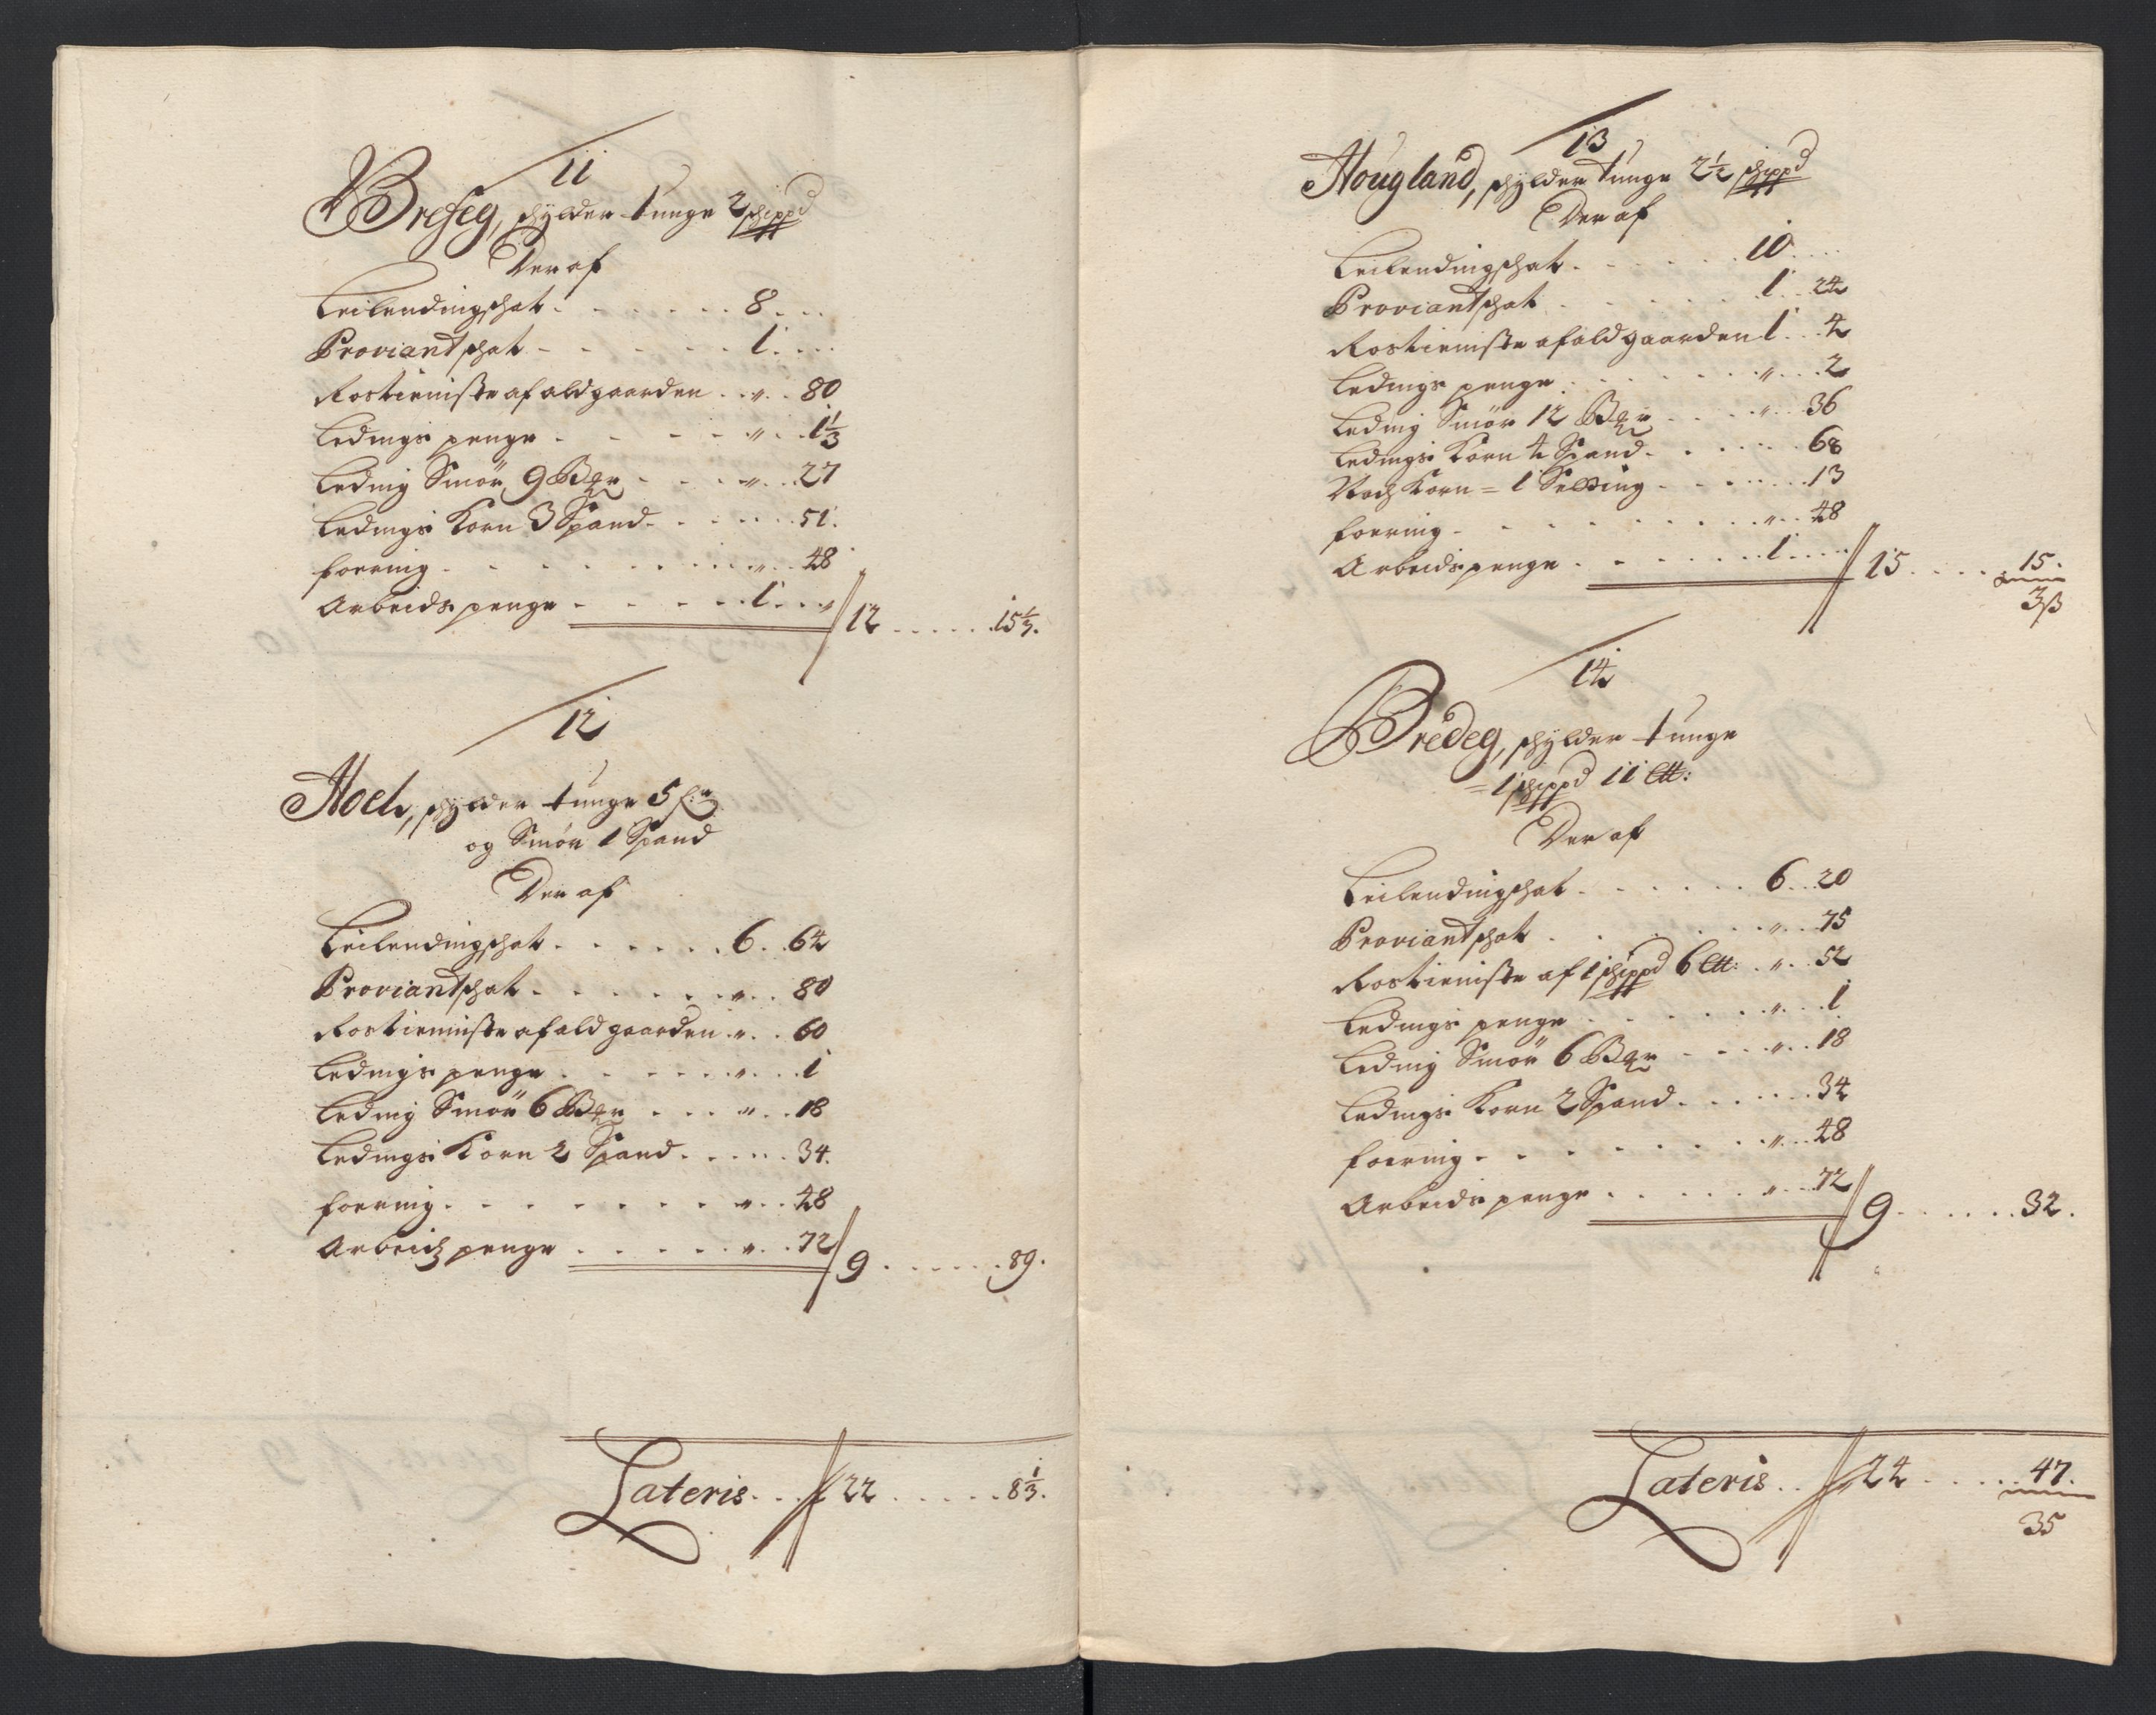 11
Breseg, schylder tunge 2 schippd
Der af
Leilendingschat . . . . . . . 8 . . .
Proviantschat - - - - - - 1 . . . .
Rostieniste af ald gaarden . . " . . 80
Ledings penge - - - - " . . 1 1/3
Leding Smør, 9 Ber - - - " . . 27
Ledings Korn 3 Spand . . . . . . 51.
foering . . . . . . . . " . . 48
Arbeids penge - - - - - 1 . . " 12 . . . . . . 15 1/3.
12
Hoel, schylder tunge 5
og Smør 1 Spand
Der af
Leilendingschat . . . . . . . 6 . . 64
Proviantschat . . . . . . . " . . 80
Rostienniste af ald gaarden . " . . 60
Ledings penge . . . . . . " . . . 1
Leding Smør 6 Ber . . . " . . 18
Ledings Korn 2 Spand . . . . . 34.
foering . . . . . . . . " . . 48
Arbeids penge . . . . . " . . 72 9 . . . . . . 89.
Lateris . . . 22 . . . . . 8 1/3.
13
Hougland, schylder tunge 2 1/2 schippd
Der af
Leilendingschat . . . . . . 10 . . . .
Proviantschat . . . . . . 1 . . 24
Rostieniste af ald gaarden 1 . . 4
Ledings penge . . . . . . " . . . 2
Leding Smør 12 Ber . . . . " . . 36
Ledings Korn 4 Spand . . . . . . 68
Noch Korn = 1 Selding . . . . . . . 13
foering . . . . . . . . . " . . 48
Arbeids penge . . . . . . . 1 . . . . 15 . . . . 15.
3 ß
14
Bredeg, schylder tunge
= 1 schippd 11 Ltt:
Der af
Leilendingschat . . . . . . 6 . . 20
Proviantschat . . . . . . . " . . 75
Rostieniste af 1 schippd 6 Ltt: . " . . 52
Ledings penge . . . . . . " . . . 1
Leding Smør 6 Ber - - - " . . 18
Ledings Korn 2 Spand . . . . . . 34
foering . . . . . . . . " . . 48
Arbeids penge . . . . . " . . 72 9 . . . . . . 32.
Lateris . . 24 . . . . . 47.
35